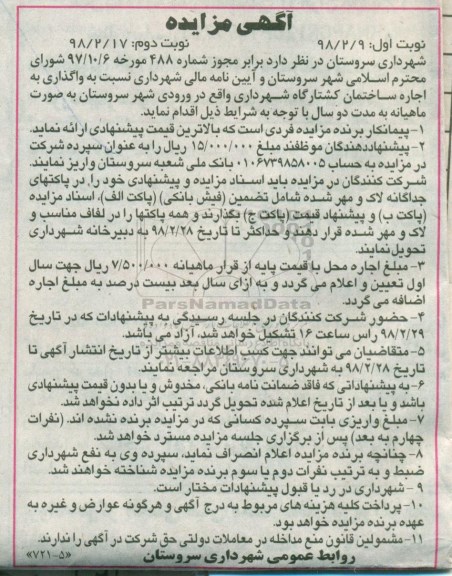 آگهی مزایده
نوبت اول: ۹۸/۲/۹ نوبت دوم: ۹۸/۲/۱۷
شهرداری سروستان در نظر دارد برابر مجوز شماره ۴۸۸ مورخه ۹۷/۱۰/۶ شورای
محترم اسلامی شهر سروستان و آیین نامه مالی شهرداری نسبت به واگذاری به
اجاره ساختمان کشتارگاه شهرداری واقع در ورودی شهر سروستان به صورت
ماهیانه به مدت دو سال با توجه به شرایط ذیل اقدام نماید.
۱- پیمانکار برنده مزایده فردی است که بالاترین قیمت پیشنهادی ارائه نماید.
۲- پیشنهاددهندگان موظفند مبلغ ۱۵/۰۰۰/۰۰۰ ریال را به عنوان سپرده شرکت
در مزایده به حساب ۰۱۰۶۷۳۹۸۵۸۰۰۵ بانک ملی شعبه سروستان واریز نمایند.
شرکت کنندگان در مزایده باید اسناد مزایده و پیشنهادی خود را در پاکتهای
جداگانه لاک و مهر شده شامل تضمین (فیش بانکی) (پاکت الف)، اسناد مزایده
(پاکت ب) و پیشنهاد قیمت (پاکت ج) بگذارند و همه پاکتها را در لفاف مناسب و
لاک و مهر شده قرار دهند و حداکثر تا تاریخ ۹۸/۲/۲۸ به دبیرخانه شهرداری
تحویل نمایند.
۳- مبلغ اجاره محل با قیمت پایه از قرار ماهیانه ۷/۵۰۰/۰۰۰ ریال جهت سال
اول تعیین و اعلام می گردد و به ازای سال بعد بیست درصد به مبلغ اجاره
اضافه می گردد.
ParsNamadData
۴- حضور شرکت کنندگان در جلسه رسیدگی به پیشنهادات که در تاریخ
۹۸/۲/۲۹ راس ساعت ۱۶ تشکیل خواهد شد، آزاد می باشد.
۵- متقاضیان می توانند جهت کسب اطلاعات بیشتر از تاریخ انتشار آگهی تا
تاریخ ۹۸/۲/۲۸ به شهرداری سروستان مراجعه نمایند.
۶- به پیشنهاداتی که فاقد ضمانت نامه بانکی، مخدوش و یا بدون قیمت پیشنهادی
باشد و یا بعد از تاریخ اعلام شده تحویل گردد ترتیب اثر داده نخواهد شد.
۷- مبلغ واریزی بابت سپرده کسانی که در مزایده برنده نشده اند. (نفرات
چهارم به بعد) پس از برگزاری جلسه مزایده مسترد خواهد شد.
۸- چنانچه برنده مزایده اعلام انصراف نماید، سپرده وی به نفع شهرداری
ضبط و به ترتیب نفرات دوم یا سوم برنده مزایده شناخته خواهند شد.
۹- شهرداری در رد یا قبول پیشنهادات مختار است.
۱۰- پرداخت کلیه هزینه های مربوط به درج آگهی و هرگونه عوارض و غیره به
عهده برنده مزایده خواهد بود.
۱۱- مشمولین قانون منع مداخله در معاملات دولتی حق شرکت در آگهی را ندارند.
روابط عمومی شهرداری سروستان «۷۲۱-۵»